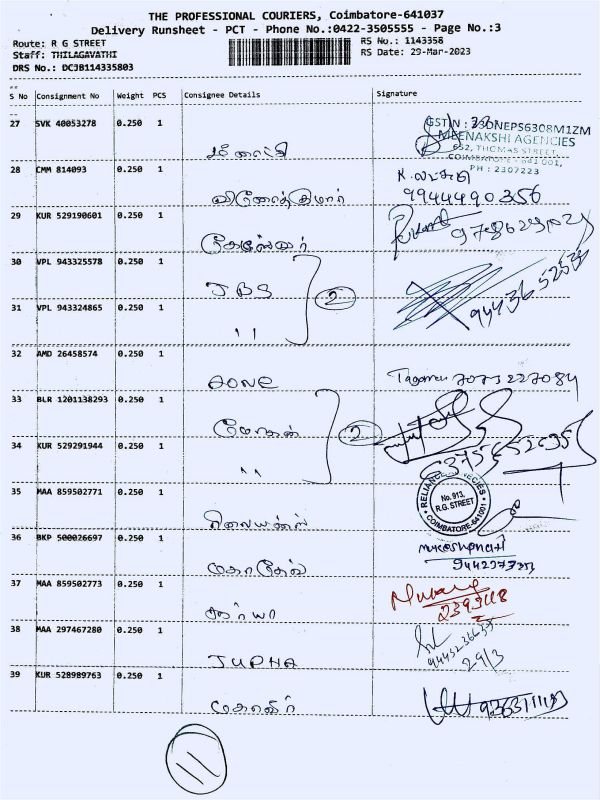 THE PROFESSIONAL COURIERS, Coimbatore-641037
Delivery Runsheet - PCT - Phone No.:0422-3505555 - Page No.:3
Route: R G STREET
RS No.: 1143358
Staff: THILAGAVATHI
RS Date: 29-Mar-2023
DRS No.: DCJB114335803
S No Consignment No Weight PCS Consignee Details Signature
27 SVK 40053278 0.250 1
MEENAKSHI AGENCIES
652, THOMAS STREET,
COIMBATORE - 641 001,
PH : 2307223
மீனாட்சி
28 CMM 814093 0.250 1
வினோத்குமார் 9944490356
29 KUR 529190601 0.250 1
30 VPL 943325578 0.250 1
JBS
2
31 VPL 943324865 0.250 1
''
32 AMD 26458574 0.250 1
AONE 7073227084
33 BLR 1201138293 0.250 1
மோகன்
2
34 KUR 529291944 0.250 1
''
35 MAA 859502771 0.250 1
RELIANCE AGENCIES
No. 913,
R.G. STREET
COIMBATORE-641001
ரிலையன்ஸ்
36 BKP 500026697 0.250 1
மகாதேவ்
37 MAA 859502773 0.250 1
2393118
சூர்யா
38 MAA 297467280 0.250 1
29/3
JUPHA
39 KUR 528989763 0.250 1
மகாவீர்
11